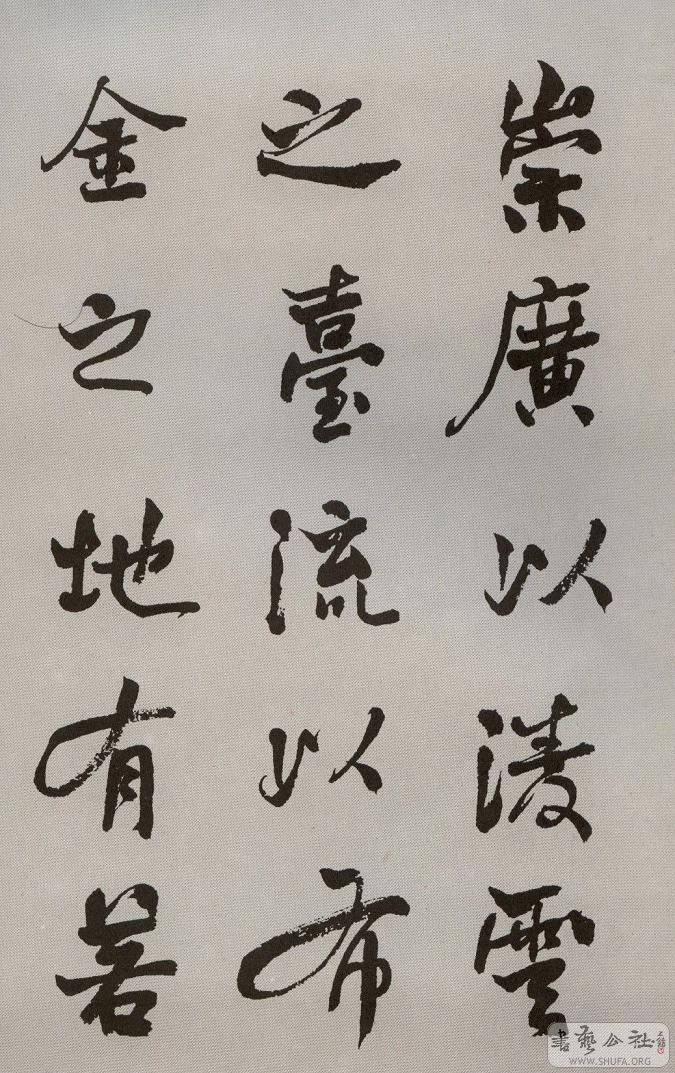 崇廣以淩雲
之臺流以布
金之地有若
書藝公社
WWW.SHUFA.ORG